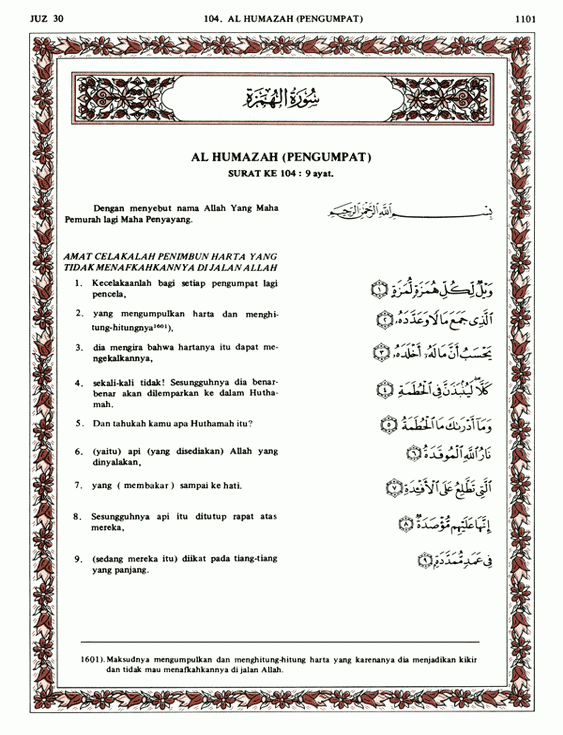 JUZ 30
104. AL HUMAZAH (PENGUMPAT)
1101
سُورَةُ الْهُمَزَةِ
AL HUMAZAH (PENGUMPAT)
SURAT KE 104 : 9 ayat.
Dengan menyebut nama Allah Yang Maha
Pemurah lagi Maha Penyayang.
بِسْمِ اللَّهِ الرَّحْمَنِ الرَّحِيمِ
AMAT CELAKALAH PENIMBUN HARTA YANG
TIDAK MENAFKAHKANNYA DI JALAN ALLAH
1. Kecelakaanlah bagi setiap pengumpat lagi
pencela,
وَيْلٌ لِّكُلِّ هُمَزَةٍ لُّمَزَةٍ ۝١
2. yang mengumpulkan harta dan menghi-
tung-hitungnya1601),
الَّذِى جَمَعَ مَالًا وَعَدَّدَهُۥ ۝٢
3. dia mengira bahwa hartanya itu dapat me-
ngekalkannya,
يَحْسَبُ أَنَّ مَالَهُۥٓ أَخْلَدَهُۥ ۝٣
4. sekali-kali tidak! Sesungguhnya dia benar-
benar akan dilemparkan ke dalam Hutha-
mah.
كَلَّا ۖ لَيُنۢبَذَنَّ فِى الْحُطَمَةِ ۝٤
5. Dan tahukah kamu apa Huthamah itu?
وَمَآ أَدْرَىٰكَ مَا الْحُطَمَةُ ۝٥
6. (yaitu) api (yang disediakan) Allah yang
dinyalakan,
نَارُ اللَّهِ الْمُوقَدَةُ ۝٦
7. yang ( membakar ) sampai ke hati.
الَّتِى تَطَّلِعُ عَلَى الْأَفْـِٔدَةِ ۝٧
8. Sesungguhnya api itu ditutup rapat atas
mereka,
إِنَّهَا عَلَيْهِم مُّؤْصَدَةٌ ۝٨
9. (sedang mereka itu) diikat pada tiang-tiang
yang panjang.
فِى عَمَدٍ مُّمَدَّدَةٍۭ ۝٩
1601). Maksudnya mengumpulkan dan menghitung-hitung harta yang karenanya dia menjadikan kikir
dan tidak mau menafkahkannya di jalan Allah.